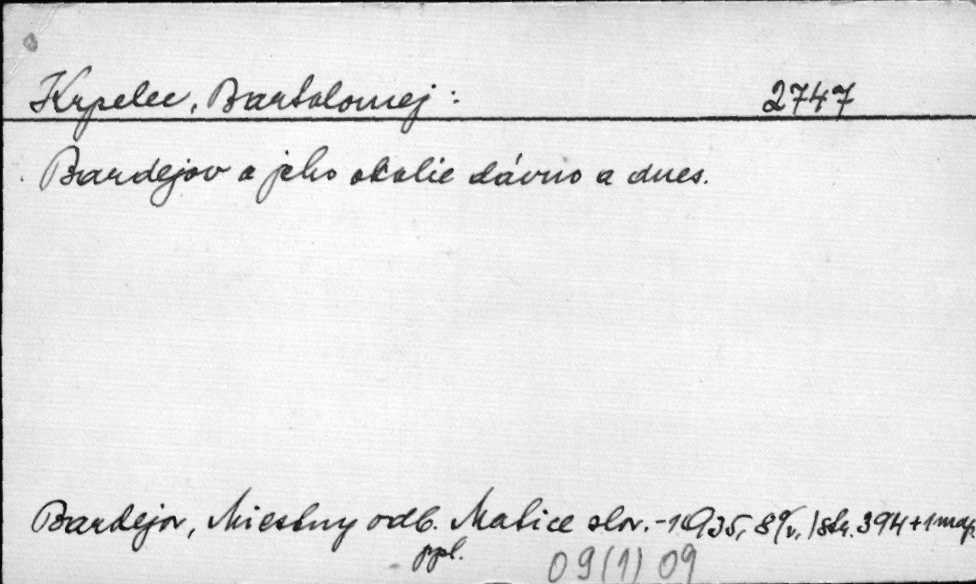 Krpelec, Bartolomej : 2747
Bardejov a jeho okolie dávno a dnes.
Bardejov, Miestny odb. Matice slov. - 1935, 8°, str. 394 + 1 map.
ppl.
09(1) 09